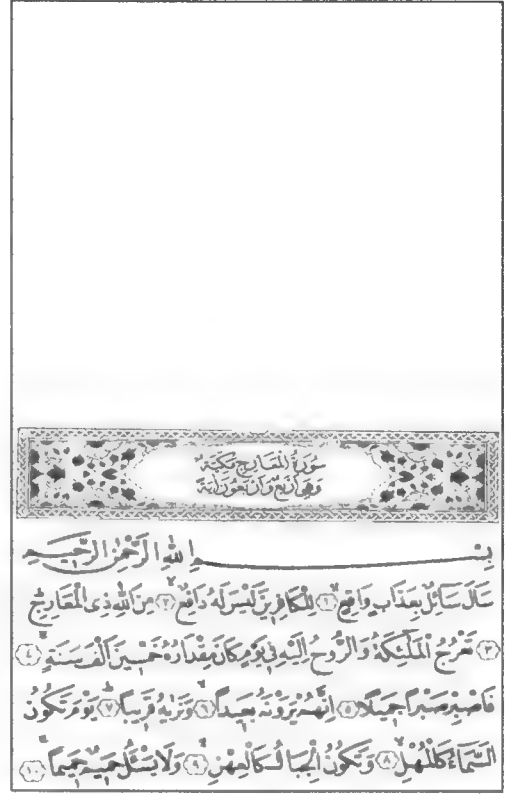 سُورَةُ الْمَعَارِجِ مَكِّيَّةٌ
وَهِيَ أَرْبَعٌ وَأَرْبَعُونَ اٰيَةً
بِسْمِ اللّٰهِ الرَّحْمٰنِ الرَّحِيمِ
سَاَلَ سَائِلٌ بِعَذَابٍ وَاقِعٍ ﴿١﴾ لِلْكَافِرِينَ لَيْسَ لَهُ دَافِعٌ ﴿٢﴾ مِنَ اللّٰهِ ذِي الْمَعَارِجِ
﴿٣﴾ تَعْرُجُ الْمَلٰئِكَةُ وَالرُّوحُ اِلَيْهِ فِي يَوْمٍ كَانَ مِقْدَارُهُ خَمْسِينَ اَلْفَ سَنَةٍ ﴿٤﴾
فَاصْبِرْ صَبْرًا جَمِيلًا ﴿٥﴾ اِنَّهُمْ يَرَوْنَهُ بَعِيدًا ﴿٦﴾ وَنَرٰيهُ قَرِيبًا ﴿٧﴾ يَوْمَ تَكُونُ
السَّمَاءُ كَالْمُهْلِ ﴿٨﴾ وَتَكُونُ الْجِبَالُ كَالْعِهْنِ ﴿٩﴾ وَلَا يَسْـَٔلُ حَمِيمٌ حَمِيمًا ﴿١٠﴾